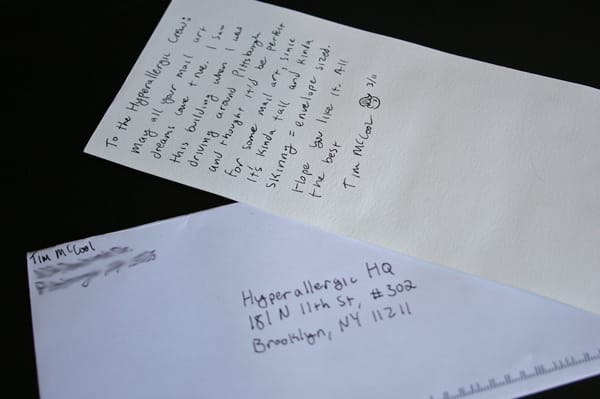 To the Hyperallergic Crew:
may all your mail art
dreams come true. I saw
this building when I was
driving around Pittsburgh
and thought it'd be perfect
for some mail art, since
it's kinda tall and kinda
skinny = envelope sized.
Hope you like it. All
the best
Tim McCool 2/11
Tim McCool
Hyperallergic HQ
181 N 11th St, #302
Brooklyn, NY 11211